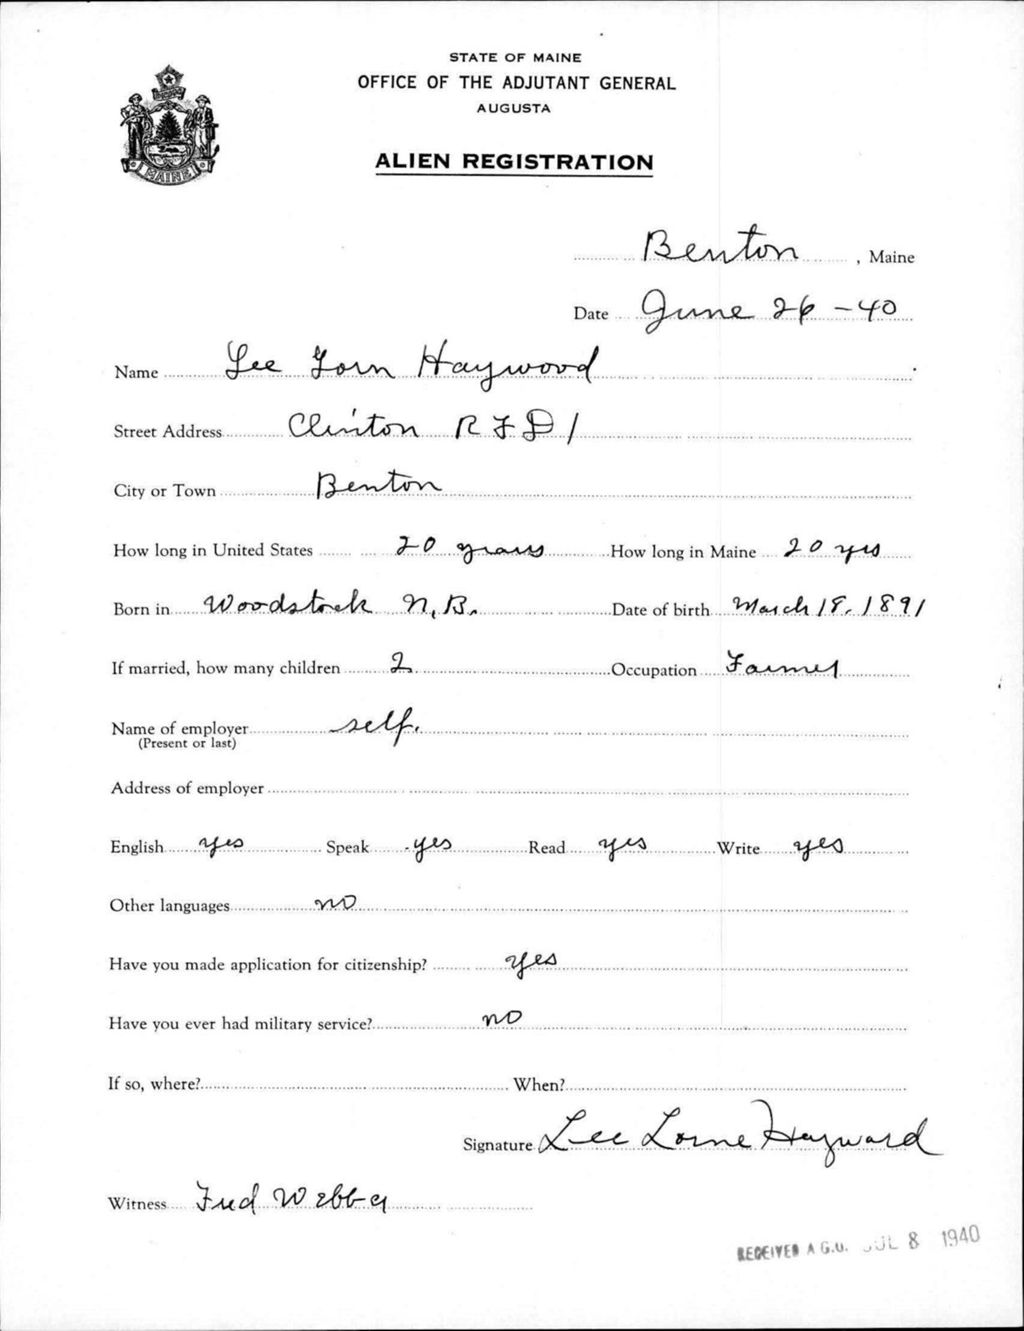 STATE OF MAINE
OFFICE OF THE ADJUTANT GENERAL
AUGUSTA
ALIEN REGISTRATION
MAINE
Benton, Maine
Date June 26-40
Name Lee Lorn Haywood
Street Address Clinton R F D 1
City or Town Benton
How long in United States 20 years How long in Maine 20 yrs
Born in Woodstock N.B. Date of birth March 18. 1891
If married, how many children 2 Occupation Farmer
Name of employer self.
(Present or last)
Address of employer
English yes Speak yes Read yes Write yes
Other languages no
Have you made application for citizenship? yes
Have you ever had military service? no
If so, where? When?
Signature Lee Lorne Hayward
Witness Fred Webber
RECEIVED A.G.O. JUL 8 1940